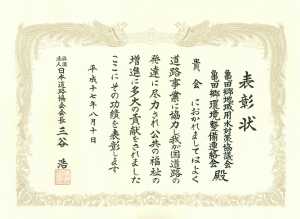 表彰状
亀田郷地域用水対策協議会
亀田郷環境整備連絡会
殿
貴会におかれましてはよく
道路事業に協力し我が国道路の
発達に尽力され公共の福祉の
増進に多大の貢献をされました
ここにその功績を表彰します
平成十七年八月十日
社団法人
日本道路協会会長 三谷 浩